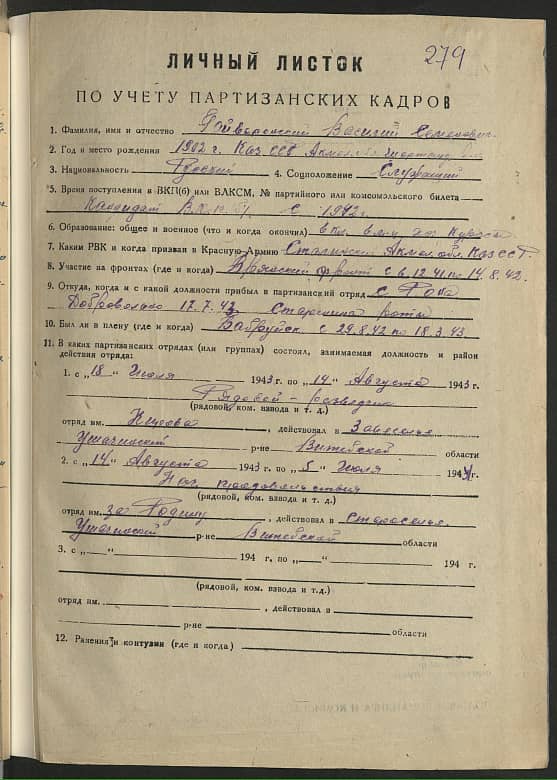 279
ЛИЧНЫЙ ЛИСТОК
ПО УЧЕТУ ПАРТИЗАНСКИХ КАДРОВ
1. Фамилия, имя и отчество Гайворонский Василий Семенович
2. Год и место рождения 1902 г. Каз ССР Акмол. обл.
3. Национальность Русский 4. Соцположение Служащий
5. Время поступления в ВКП(б) или ВЛКСМ, № партийного или комсомольского билета
Кандидат В.К.П.б/. С 1942г.
6. Образование: общее и военное (что и когда окончил) 6 кл.
7. Каким РВК и когда призван в Красную Армию Сталинский Акмол. обл. Каз ССР.
8. Участие на фронтах (где и когда) Брянский фронт с 6.12.41 по 14.8.42.
9. Откуда, когда и с какой должности прибыл в партизанский отряд с
Добровольно 17.7.43. Старшина роты
10. Был ли в плену (где и когда) Бабруйск с 29.8.42 по 18.3.43.
11. В каких партизанских отрядах (или группах) состоял, занимаемая должность и район
действия отряда:
1. с „18" Июля 1943 г. по „14" Августа 1943 г.
Рядовой - разведчик
(рядовой, ком. взвода и т. д.)
отряд им. , действовал в Завеселье
Ушачинский р-не Витебской области
2. с „14" Августа 1943 г. по „5" Июля 1944 г.
Нач. продовольствия
(рядовой, ком. взвода и т. д.)
отряд им. за Родину, действовал в Староселье
Ушачинский р-не Витебской области
3. с „ " 194 г. по „ " 194 г.
(рядовой, ком. взвода и т.д.)
отряд им. , действовал в
р-не области
12. Ранения и контузии (где и когда)